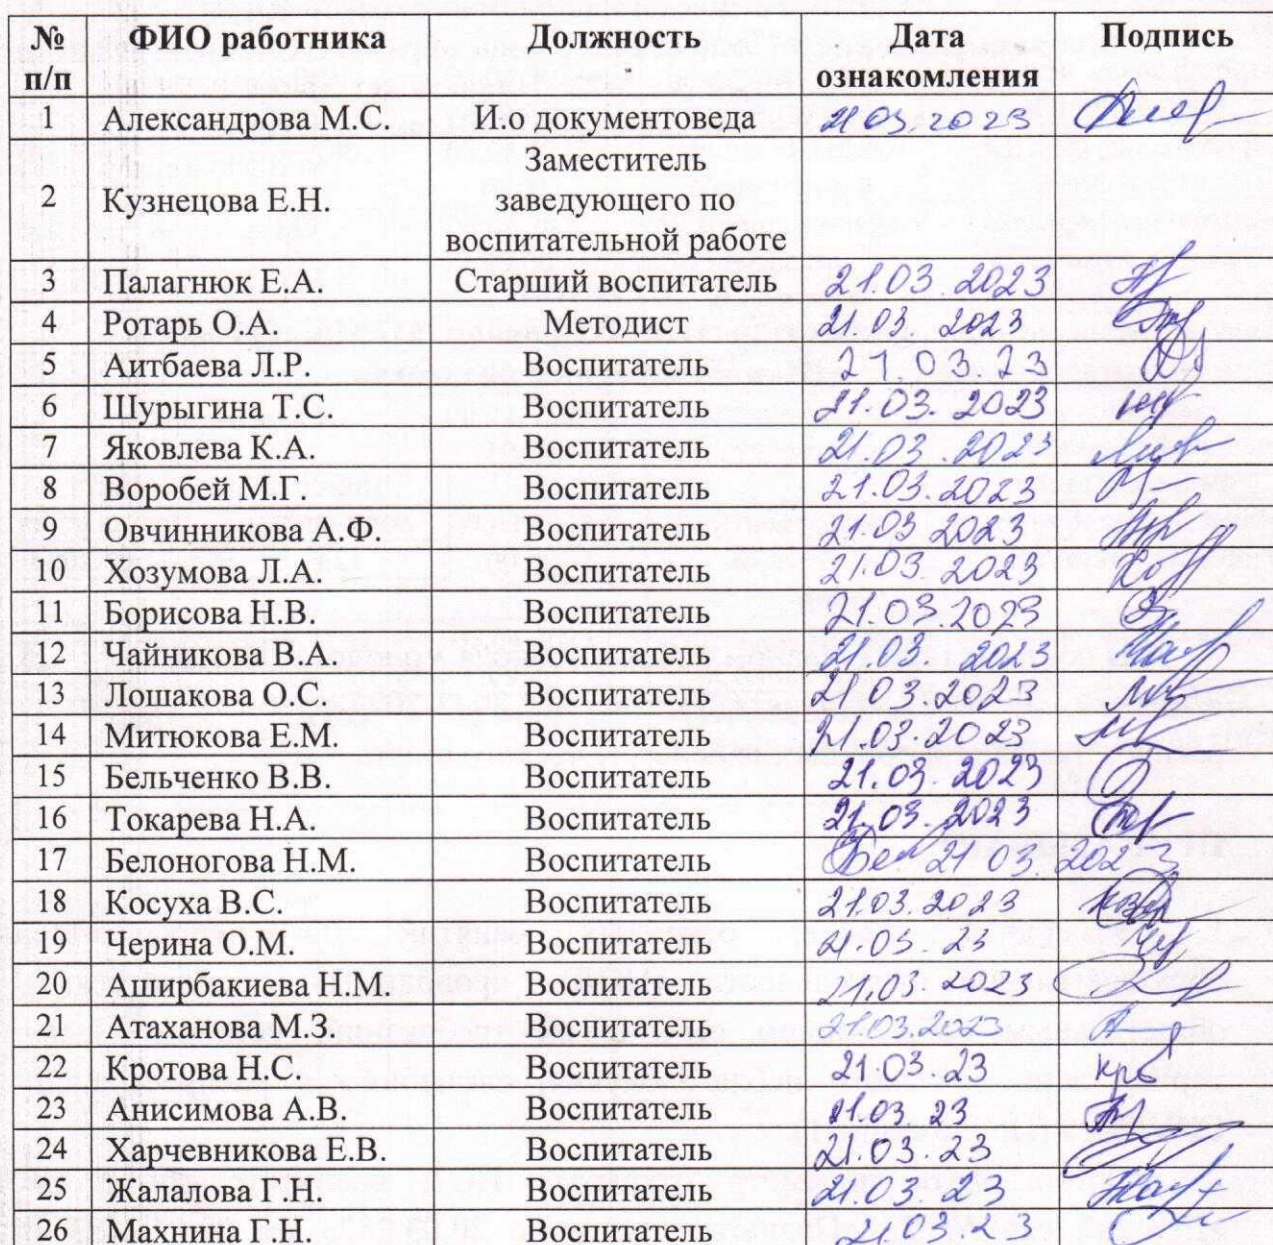 № п/п ФИО работника Должность Дата ознакомления Подпись
1 Александрова М.С. И.о документоведа 21 03.2023
2 Кузнецова Е.Н. Заместитель заведующего по воспитательной работе
3 Палагнюк Е.А. Старший воспитатель 21.03.2023
4 Ротарь О.А. Методист 21.03 2023
5 Аитбаева Л.Р. Воспитатель 21 03 23
6 Шурыгина Т.С. Воспитатель 21.03.2023
7 Яковлева К.А. Воспитатель 21.03.2023
8 Воробей М.Г. Воспитатель 21.03.2023
9 Овчинникова А.Ф. Воспитатель 21.03 2023
10 Хозумова Л.А. Воспитатель 21.03.2023
11 Борисова Н.В. Воспитатель 21.03.2023
12 Чайникова В.А. Воспитатель 21.03 2023
13 Лошакова О.С. Воспитатель 21 03.2023
14 Митюкова Е.М. Воспитатель 21.03.2023
15 Бельченко В.В. Воспитатель 21.03.2023
16 Токарева Н.А. Воспитатель 21.03.2023
17 Белоногова Н.М. Воспитатель Бел 21 03.2023
18 Косуха В.С. Воспитатель 21.03.2023
19 Черина О.М. Воспитатель 21.03.23
20 Аширбакиева Н.М. Воспитатель 21.03 2023
21 Атаханова М.З. Воспитатель 21.03.2023
22 Кротова Н.С. Воспитатель 21.03.23
23 Анисимова А.В. Воспитатель 21.03.23
24 Харчевникова Е.В. Воспитатель 21.03.23
25 Жалалова Г.Н. Воспитатель 21.03.23
26 Махнина Г.Н. Воспитатель 21.03.23